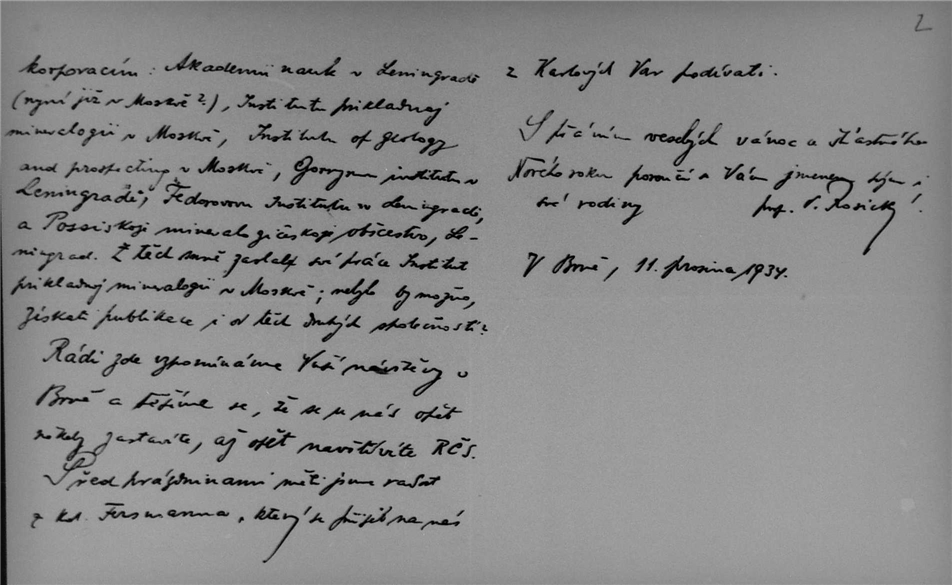 2
korporacím: Akademii nauk v Leningradě
(nyní již v Moskvě?), Institutu prikladnoj
mineralogii v Moskvě, Institutu of geology
and prospecting v Moskvě, Gornyum institutu v
Leningradě, Fedorovom Institutu v Leningradě,
a Rossiskoji mineralogičeskoji občestvo, Le-
ningrad. Z těch mně zaslal své práce Institut
prikladnoj mineralogii v Moskvě; nebylo by možno,
získati publikace i od těch druhých společností?
Rádi zde vzpomínáme Vaší návštěvy v
Brně a těšíme se, že se u nás opět
někdy zastavíte, až opět navštívíte RČS.
Před prázdninami měli jsme radost
z kol. Fersmanna, který se přijel na nás
z Karlových Var podívati.
S přáním veselých vánoc a šťastného
Nového roku poroučí se Vám jmenem svým i
své rodiny prof. V. Rosický.
V Brně, 11. prosince 1934.